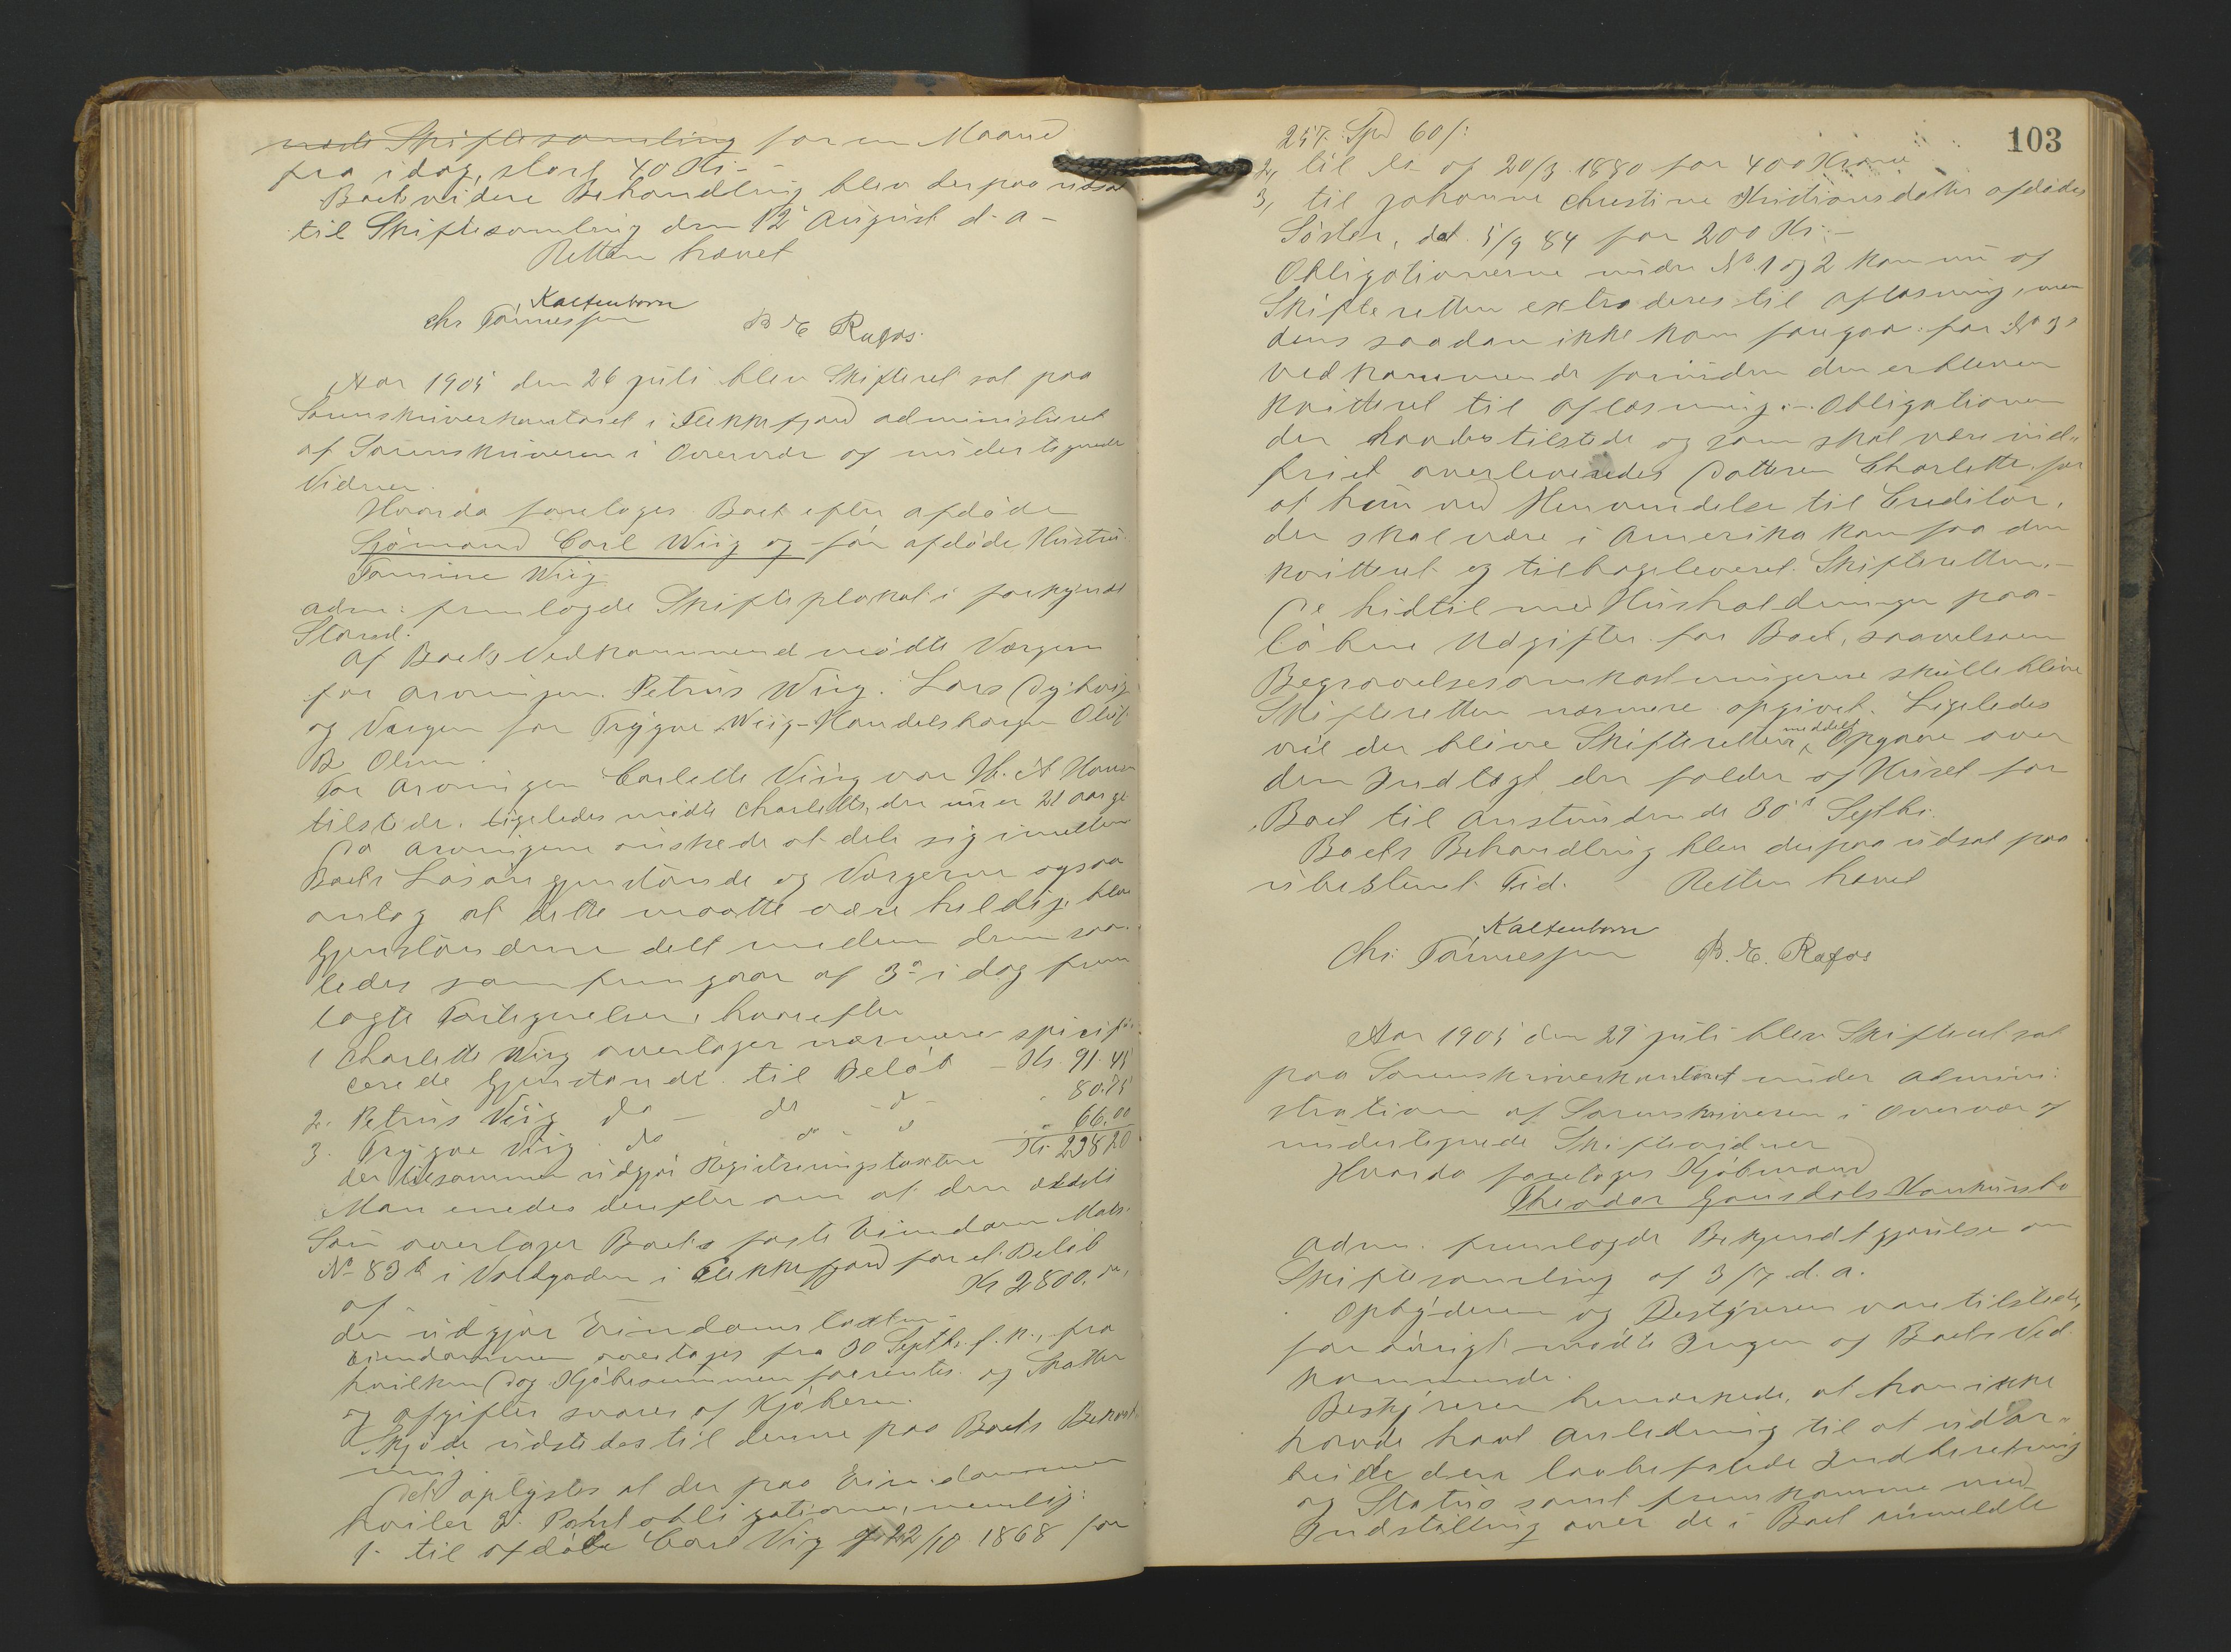 Skiftesamling for en Maaned
fra idag, stort 40 Kr.-
Boets videre Behandling blev derpaa udsat
til Skiftesamling den 12' August d. a-
Retten hævet
Kaltenborn
Chr Tønnessen B. E. Rafos.
Aar 1905 den 26 juli blev Skifteret sat paa
Sorenskriverkontoret i Flekkefjord administreret
af Sorenskriveren i Overvær af undertegnede
Vidner.
Hvorda foretoges Boet efter afdøde
Sjømand Carl Wiig og før afdøde Hustru
Tomine Wiig
Adm: fremlagde Skifteplakat i forkyndt
Stand.
Af Boets Vedkommende mødte Værgen
for Arvingen Petrus Wiig. Lars
og Værgen for Trygve Wiig - Handelsborger Oluf
B. Olsen.
For Arvingen Carlette Viig var H. A Hansen
tilstede. Ligeledes mødte Charlette, der nu er 21 aar gl.
Da Arvingene ønskede at dele sig imellem
Boets Løsøregjenstande og Værgerne ogsaa
antog at dette maatte være heldigt blev
Gjenstandene delt mellem dem saa-
ledes som fremgaar af 3 i dag frem
lagte Fortegnelser, hvorefter
1 Charlette Wiig overtager nærmere spicifi-
cerede Gjenstande til Beløb - Kr. 91.45
2. Petrus Viig do - do - d - " 80.75
3. Trygve Viig do " do - d " 66.00
der tilsammen udgjør Registreringstaxten Kr. 238 20
Man enedes derefter om at den ældste
Søn overtager Boets faste Eiendom Matr.
No 83 b i Voldgaden i Flekkefjord for et Beløb
af Kr 2800. oo,
der udgjør Eiendoms taxten-
Eiendommen overtages fra 30 Septbr. f. k., fra
hvilken Dag Kjøbesummen forrentes og Skatter
og Afgifter svares af Kjøberen.
Skjøde udstedes til denne paa Boets Bekost-
ning.
Det oplystes at der paa Eiendommen
hviler 3. Pantobligationer, nemlig:
1. til afdøde Carl Viig af 22/10 1868 for
103
257. Spd 60/:
2, til do af 20/3 1880 for 400 Kroner
3, til Johanne Christine Kristiansdatter afdødes
Søster, dat. 5/9 84 for 200 Kr.-
Obligationerne under No 1 og 2 kan nu af
Skifteretten extraderes til Aflæsning, me
dens saadan ikke kan foregaa for No 3s
vedkommende forinden den er bleven
kvitteret til Aflæsning.- Obligationen
der havdes tilstede og som skal være ind-
friet overleveredes Datteren Charlette, for
at hun ved Henvendelse til Creditor,
der skal være i Amerika kan faa den
kvitteret og tilbageleveret Skifteretten.-
De hidtil med Husholdningen paa-
løbne Udgifter for Boet, saavelsom
Begravelsesomkostningerne skulle blive
Skifteretten nærmere opgivet. Ligeledes
vil der blive Skifteretten meddelt Opgave over
den Indtægt der falder af Huset for
Boet til Anstundende 30' Septbr.
Boets Behandling blev derpaa udsat paa
ubestemt Tid. Retten hævet
Kaltenborn
Chr. Tønnessen B. E. Rafos
Aar 1905 den 29 juli blev Skifteret sat
paa Sorenskriverkontoret under Admini-
stration af Sorenskriveren i Overvær af
undertegnede Skiftevidner
Hvorda foretoges Kjøbmand
Theodor Gausdals Konkursbo
Adm. fremlagde Bekjendtgjørelse om
Skiftesamling af 3/7 d. a.
Opbyderen og Bestyreren vare tilstede,
forøvrigt mødte Ingen af Boets Ved-
kommende.
Bestyreren bemærkede, at han ikke
havde havt Anledning til at udar-
beide den lovbefalede Indberetning
og Status samt fremkomme med
Indstilling over de i Boet anmeldte